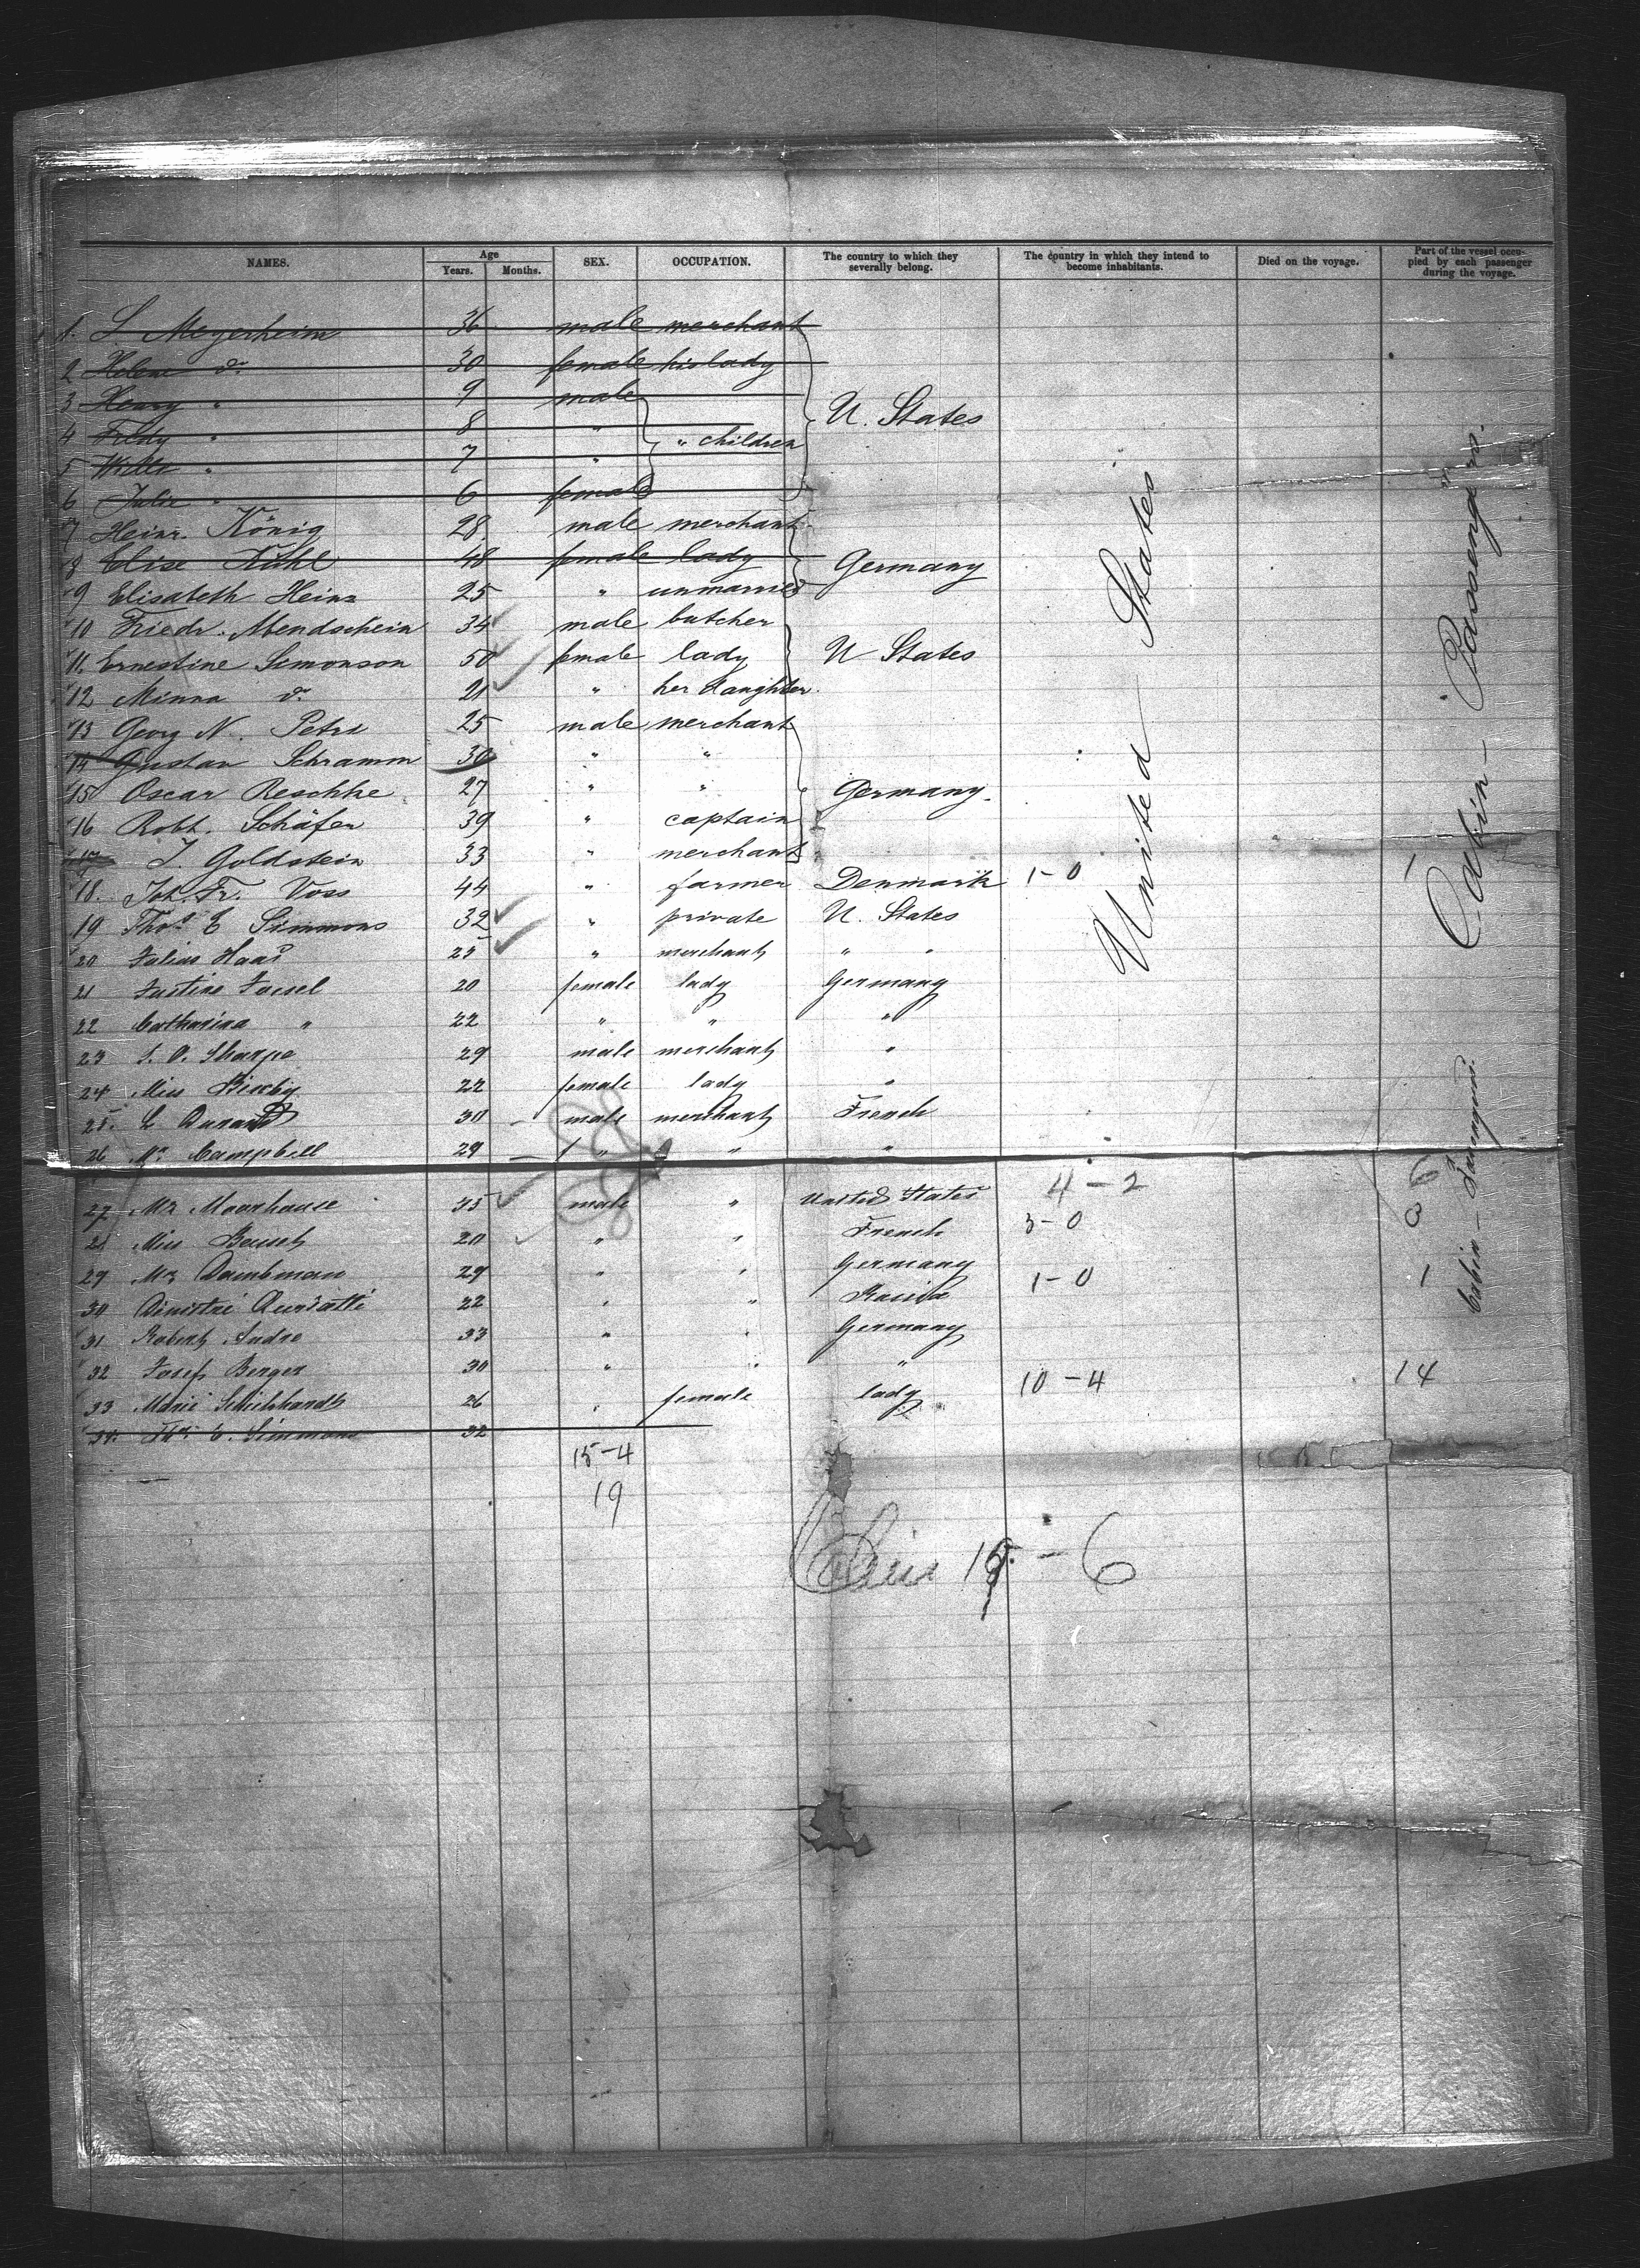 NAMES. Age Years. Months. SEX. OCCUPATION. The country to which they severally belong. The country in which they intend to become inhabitants. Died on the voyage. Part of the vessel occupied by each passenger during the voyage.
1. L. Meyerheim 36 male merchant
2 Helene do 30 female his lady
3 Henry " 9 male
4 Fredy " 8 " U. States
5 Willi " 7 " " children
6 Julie " 6 female
7 Heinr. König 28 male merchant
8 Elise Kühl 48 female lady Germany
9 Elisabeth Heins 25 " unmarried
10 Friedr. Mendschein 34 male butcher
11. Ernestine Simonson 50 female lady U States
12 Minna do 21 " her daughter
13 Georg N. Petri 25 male merchant
14 Gustav Schramm 30 " "
15 Oscar Reschke 27 " " Germany.
16 Robt. Schäfer 39 " captain
17 J. Goldstein 33 " merchant
18. Joh. Fr. Voss 44 " farmer Denmark 1-0 1
19 Thos. E Simmons 32 " private U. States
20 Julius Haas 25 " merchant " "
21 Justine Jaesel 20 female lady Germany
22 Catharina " 22 " " "
23 S. O. Sharpe 29 male merchant "
24 Miss Bixby 22 female lady "
25. L Durand 30 male merchant French
26 Mr. Campbell 29 " " "
27 Mr Moorhouse 35 male " United States 4-2 6
28 Miss Bensch 20 " " French 3-0 3
29 Mr Dambman 29 " " Germany
30 22 " " Russia 1-0 1
31 Robert Andre 33 " " Germany
32 Josef Berger 30 " " "
33 Marie Schuhhardt 26 " female lady 10-4 14
34. Thos E. Simmons 32
15-4
19
- 6
United States
Cabin - Passengers.
Cabin - Passengers